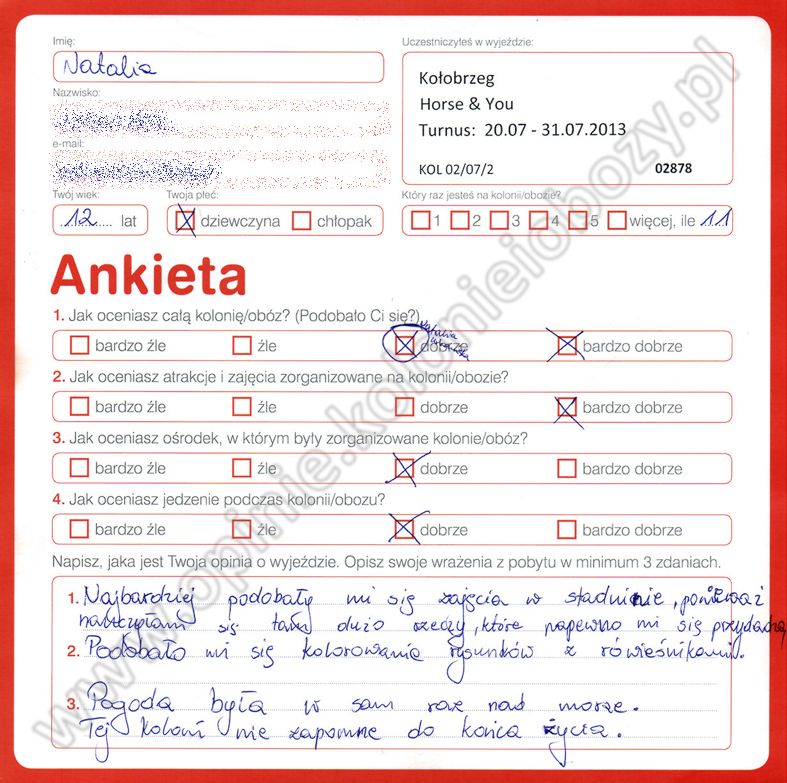 Imię:
Natalia
Uczestniczyłeś w wyjeździe:
Kołobrzeg
Horse & You
Turnus: 20.07 - 31.07.2013
KOL 02/07/2 02878
Nazwisko:
e-mail:
Twój wiek: Twoja płeć: Który raz jesteś na kolonii/obozie?
12 lat dziewczyna chłopak 1 2 3 4 5 więcej, ile 11
Ankieta
1. Jak oceniasz całą kolonię/obóz? (Podobało Ci się?)
Natalia
bardzo źle źle dobrze bardzo dobrze
2. Jak oceniasz atrakcje i zajęcia zorganizowane na kolonii/obozie?
bardzo źle źle dobrze bardzo dobrze
3. Jak oceniasz ośrodek, w którym były zorganizowane kolonie/obóz?
bardzo źle źle dobrze bardzo dobrze
4. Jak oceniasz jedzenie podczas kolonii/obozu?
bardzo źle źle dobrze bardzo dobrze
Napisz, jaka jest Twoja opinia o wyjeździe. Opisz swoje wrażenia z pobytu w minimum 3 zdaniach.
1. Najbardziej podobały mi się zajęcia w stadninie, ponieważ
nauczyłam się tam dużo rzeczy, które napewno mi się przydadzą
2. Podobało mi się kolorowanie rysunków z rówieśnikami.
3. Pogoda była w sam raz nad morze.
Tej koloni nie zapomne do końca życia.
www.opinie.kolonieiobozy.pl